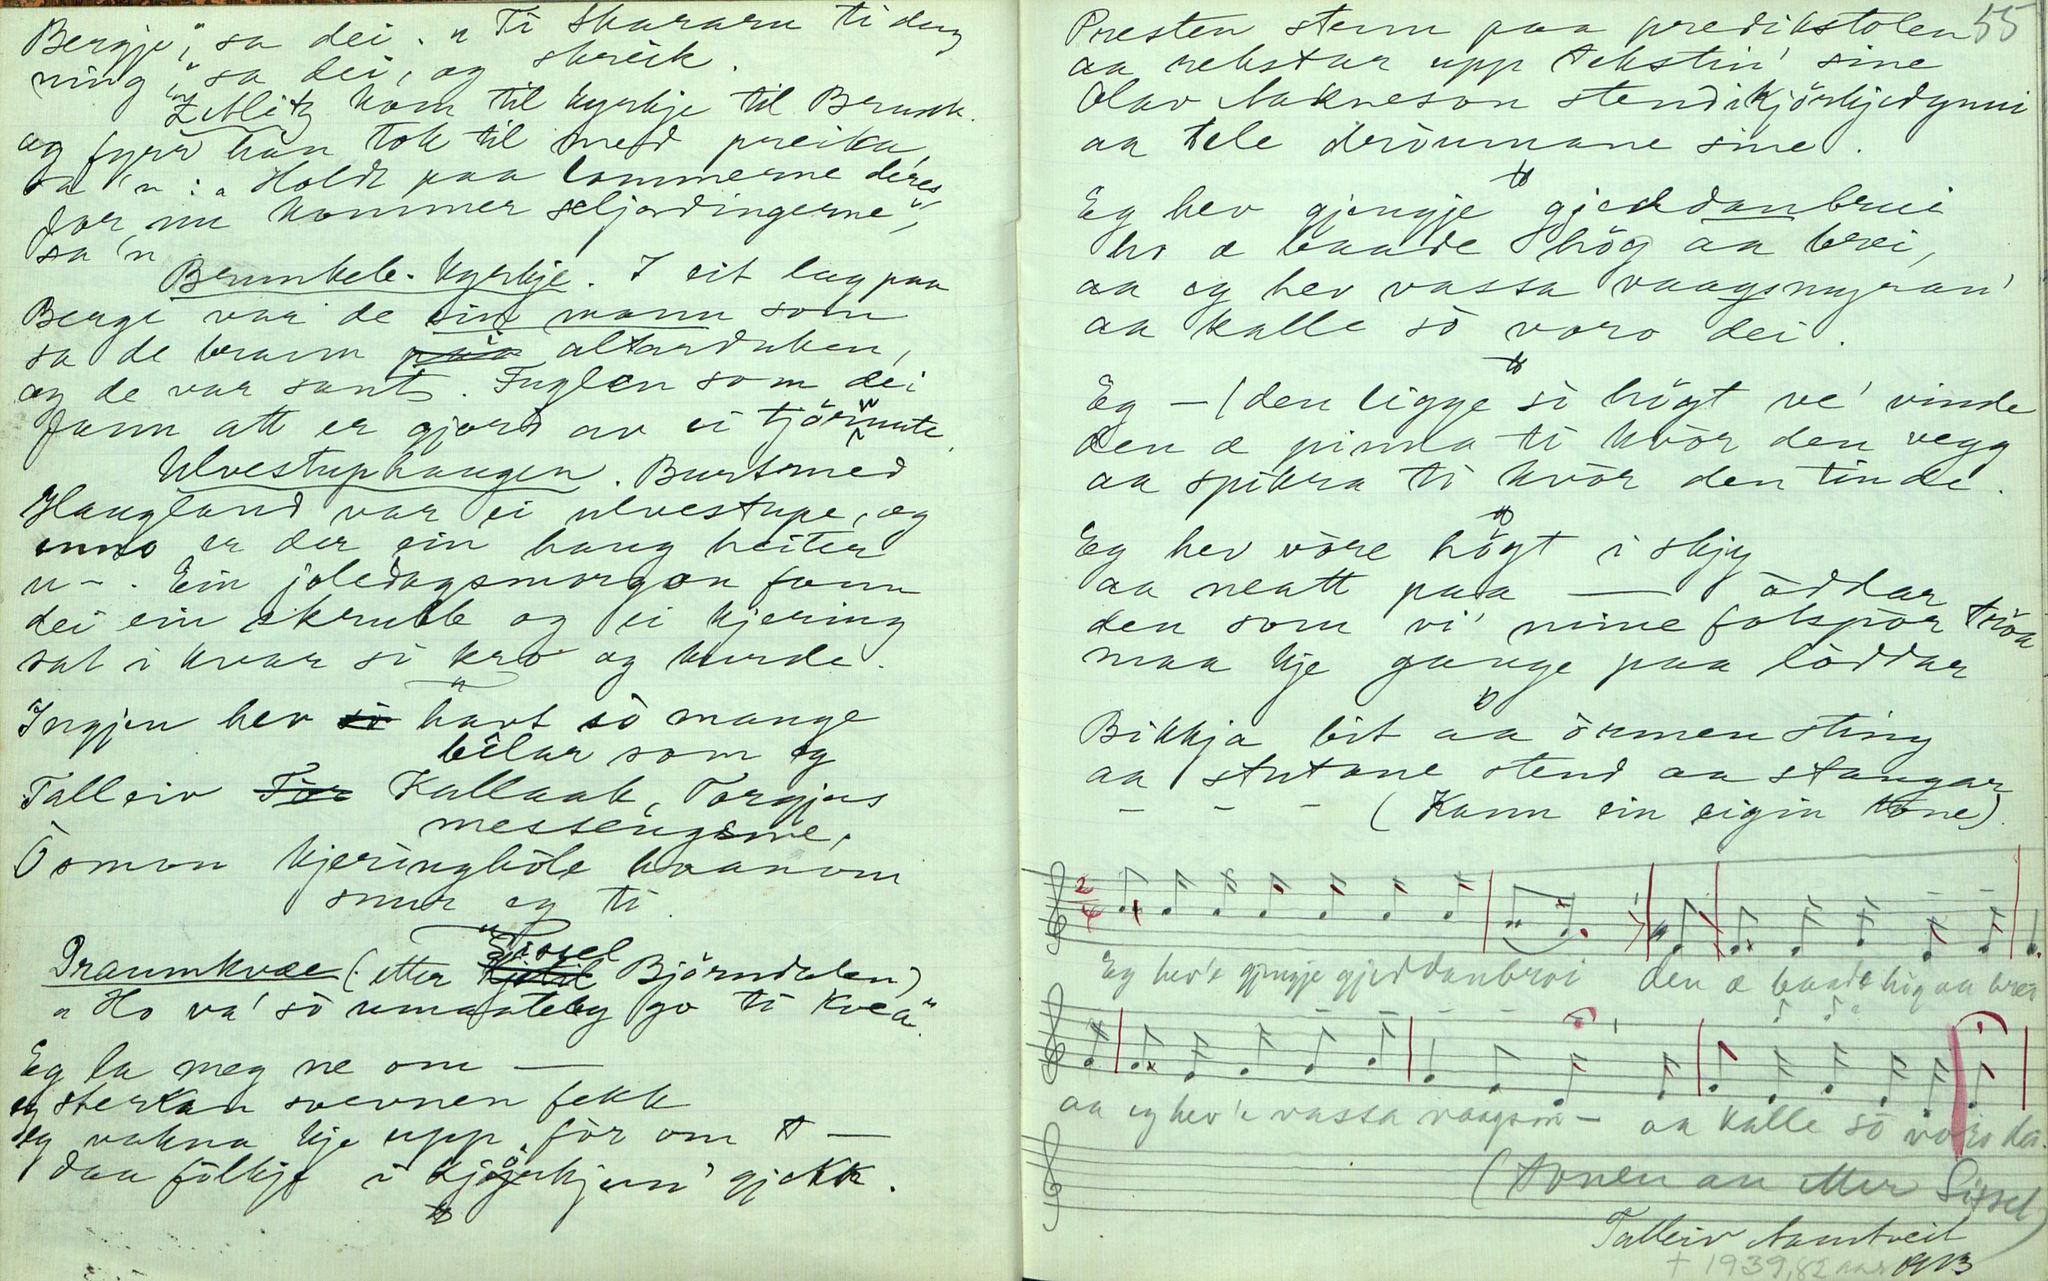 Bergje", sa dei. "Ti Skararn ti deng
ning" sa dei, og skreik.
Zeblitz kom til kyrkje til Brunk.
og fyrr han tok til med preika,
sa 'n: "Holdt paa lommerne deres
for nu kommer seljordingerne",
sa 'n
Brunkeb. kyrkje. I eit lag paa
Berge var de ein mann som
sa de brann paa altarduken,
og de var sant. Fuglen som dei
fann att er gjord av ei tjörnute.
Ulvestuphaugen. Burtmed
Haugland var ei ulvestupe, og
enno er der ein haug heiter
u-. Ein joledagsmorgon fann
dei ein skrubb og ei kjering
sat i kvar si kro og kurde.
Ingjen hev so havt sò mange
bèlar som eg
Talleiv Tor Kallaak, Torgjus
messèngsme,
Òsmon kjeringhòle haanom
snur eg ti
Draumkvæe (etter Kjetil Sissel Björndalen)
"Ho va' sò umaateleg go ti kvea".
Eg la meg ne om —
eg sterkan svevnen fekk
eg vakna kje upp fòr om t —
daa fòlkje i kjørkjun' gjekk.
55
Presten stenn paa predikstolen
aa rekstar upp tekstin' sine
Olav Aakneson stend i kjørkjedynni
aa tele dròumane sine.
Eg hev gjengje gjeddanbrui
ho æ baade hög aa brei,
aa eg hev vassa vaagsmyran'
aa kalle sò voro dei.
Eg — (den ligge sì högt ve' vinde
den æ pinna ti kvòr den vegg
aa spikra ti kvòr den tinde.
Eg hev vòre högt i skjy
aa neatt paa — òddar
den som vi' mine fotspòr tröa
maa kje gange paa lòddar
Bikkja bit aa òrmen sting
aa stutane stend aa stangar
— — — (Kann ein eigin tone).
2/4
Eg hev'e gjengje gjeddanbroi den æ baade hög aa brei
aa eg hev'e vassa vaagsm— aa kalle sò voro dei.
(Tonen an etter Sissel)
Talleiv Aamtveit
† 1939, 82 aar 1913